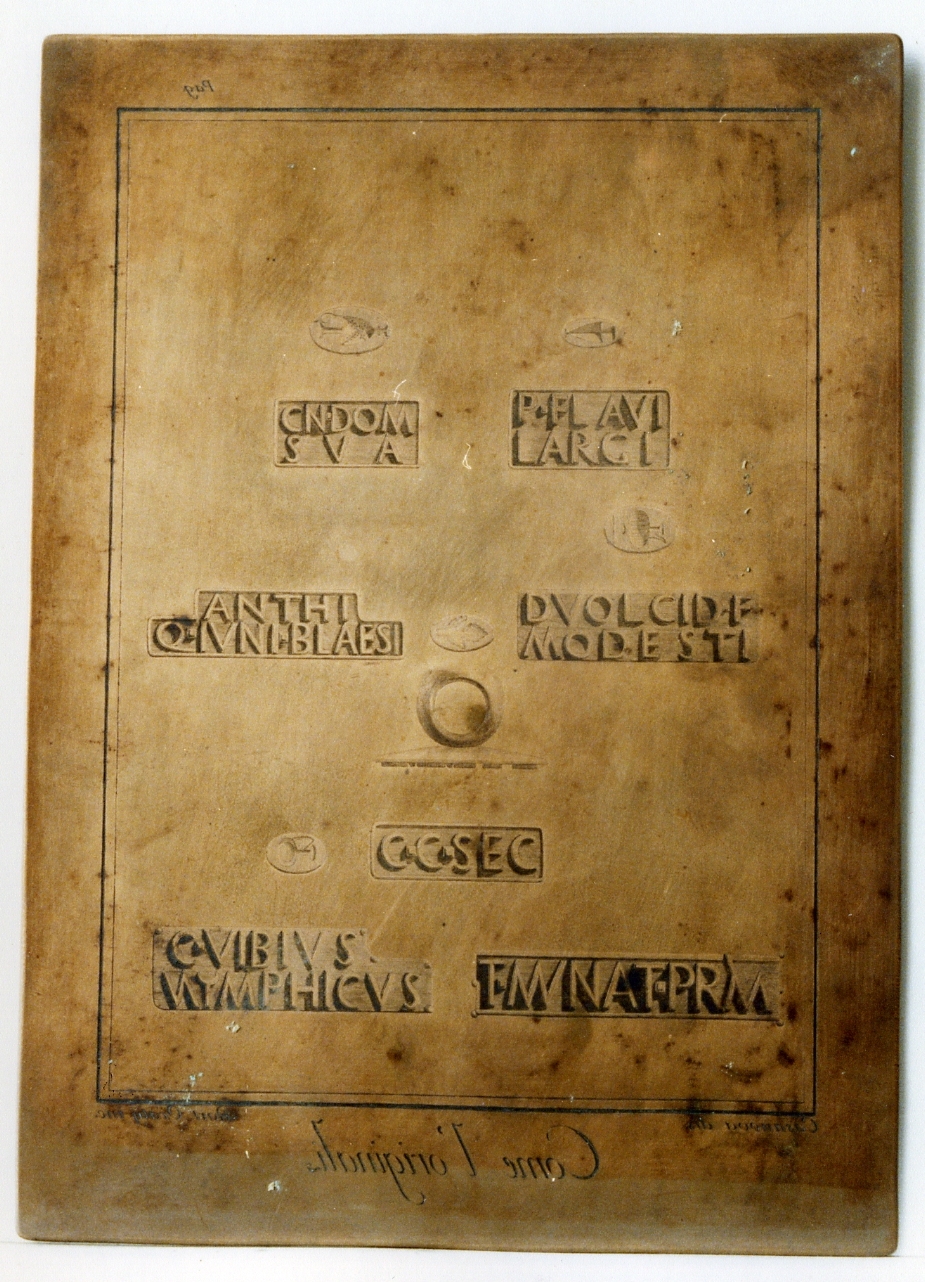 Pag
CN·DOM
S V A
P·FLAVI
LARGI
ANTHI
Q·IVNI·BLAESI
DVOLCID·F
MODESTI
C·C·SEC
C·VIBIVS
NYMPHICVS
Casanova del.
Come l'originale